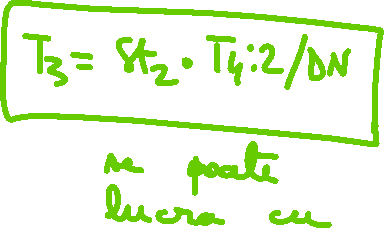 T₃ = St₂ • T₄:2/DN
se poate
lucra cu